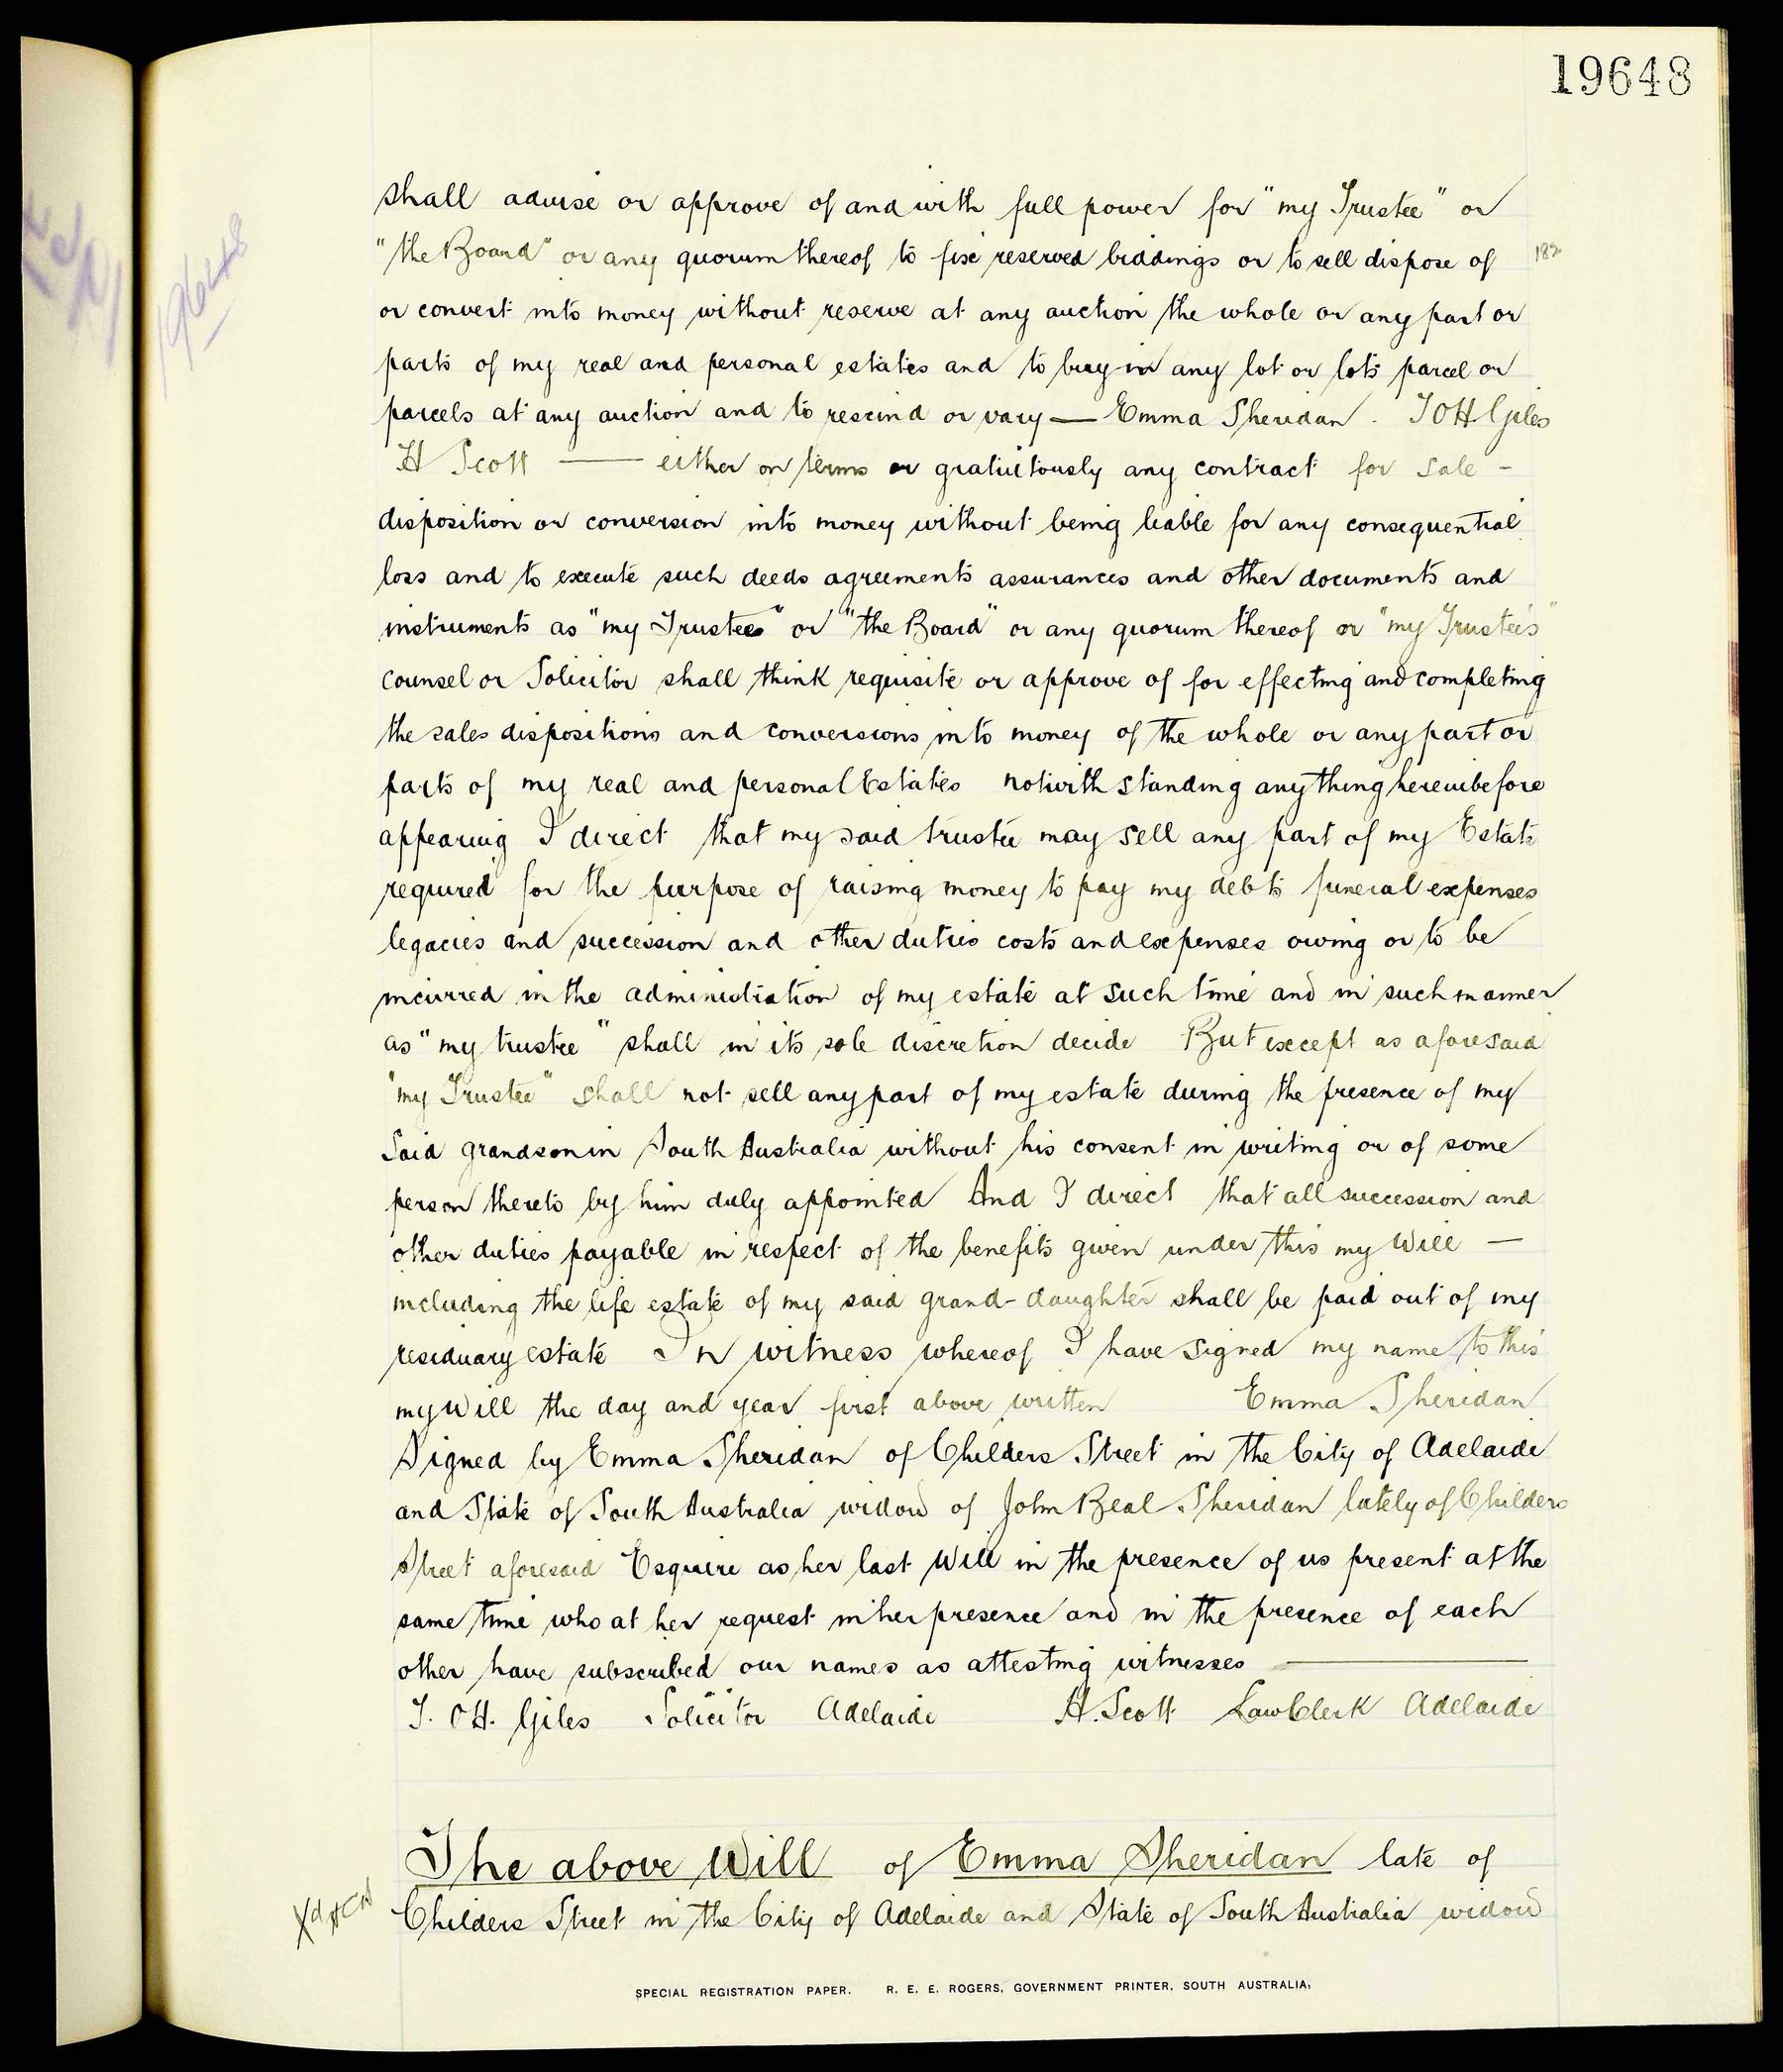 19648
19648
shall advise or approve of and with full power for "my Trustee" or
"the Board" or any quorum thereof to fix reserved biddings or to sell dispose of
or convert into money without reserve at any auction the whole or any part or
parts of my real and personal estates and to buy in any lot or lots parcel or
parcels at any auction and to rescind or vary — Emma Sheridan. T OH Giles
H Scott — either on terms or gratuitously any contract for sale -
disposition or conversion into money without being liable for any consequential
loss and to execute such deeds agreements assurances and other documents and
instruments as "my Trustees" or "the Board" or any quorum thereof or "my Trustee's"
counsel or Solicitor shall think requisite or approve of for effecting and completing
the sales dispositions and conversions into money of the whole or any part or
parts of my real and personal Estates notwith standing anything hereinbefore
appearing I direct that my said trustee may sell any part of my Estate
required for the purpose of raising money to pay my debts funeral expenses
legacies and succession and other duties costs and expenses owing or to be
incurred in the administration of my estate at such time and in such manner
as "my trustee" shall in its sole discretion decide But except as aforesaid
"my Trustee" shall not sell any part of my estate during the presence of my
said grandson in South Australia without his consent in writing or of some
person thereto by him duly appointed And I direct that all succession and
other duties payable in respect of the benefits given under this my Will —
including the life estate of my said grand-daughter shall be paid out of my
residuary estate In witness whereof I have signed my name to this
my Will the day and year first above written Emma Sheridan
Signed by Emma Sheridan of Childers Street in the City of Adelaide
and State of South Australia widow of John Beal Sheridan lately of Childers
Street aforesaid Esquire as her last Will in the presence of us present at the
same time who at her request in her presence and in the presence of each
other have subscribed our names as attesting witnesses —
T. OH. Giles Solicitor Adelaide H. Scott Law Clerk Adelaide
The above Will of Emma Sheridan late of
Childers Street in the City of Adelaide and State of South Australia widow
SPECIAL REGISTRATION PAPER. R. E. E. ROGERS, GOVERNMENT PRINTER, SOUTH AUSTRALIA.